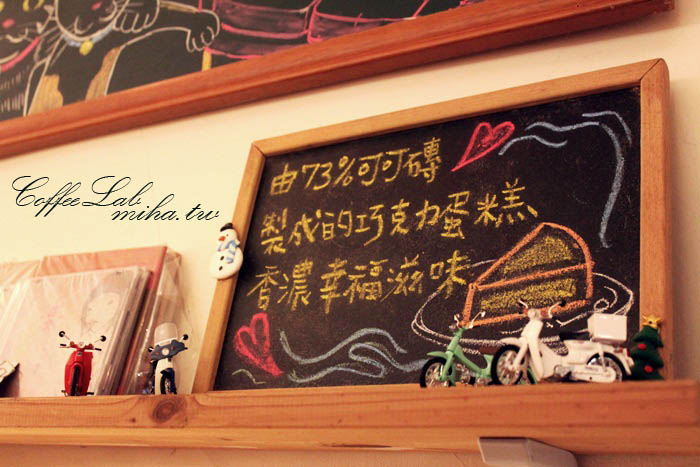 由73%可可磚
製成的巧克力蛋糕
香濃幸福滋味
Coffee Lab
miha.tw